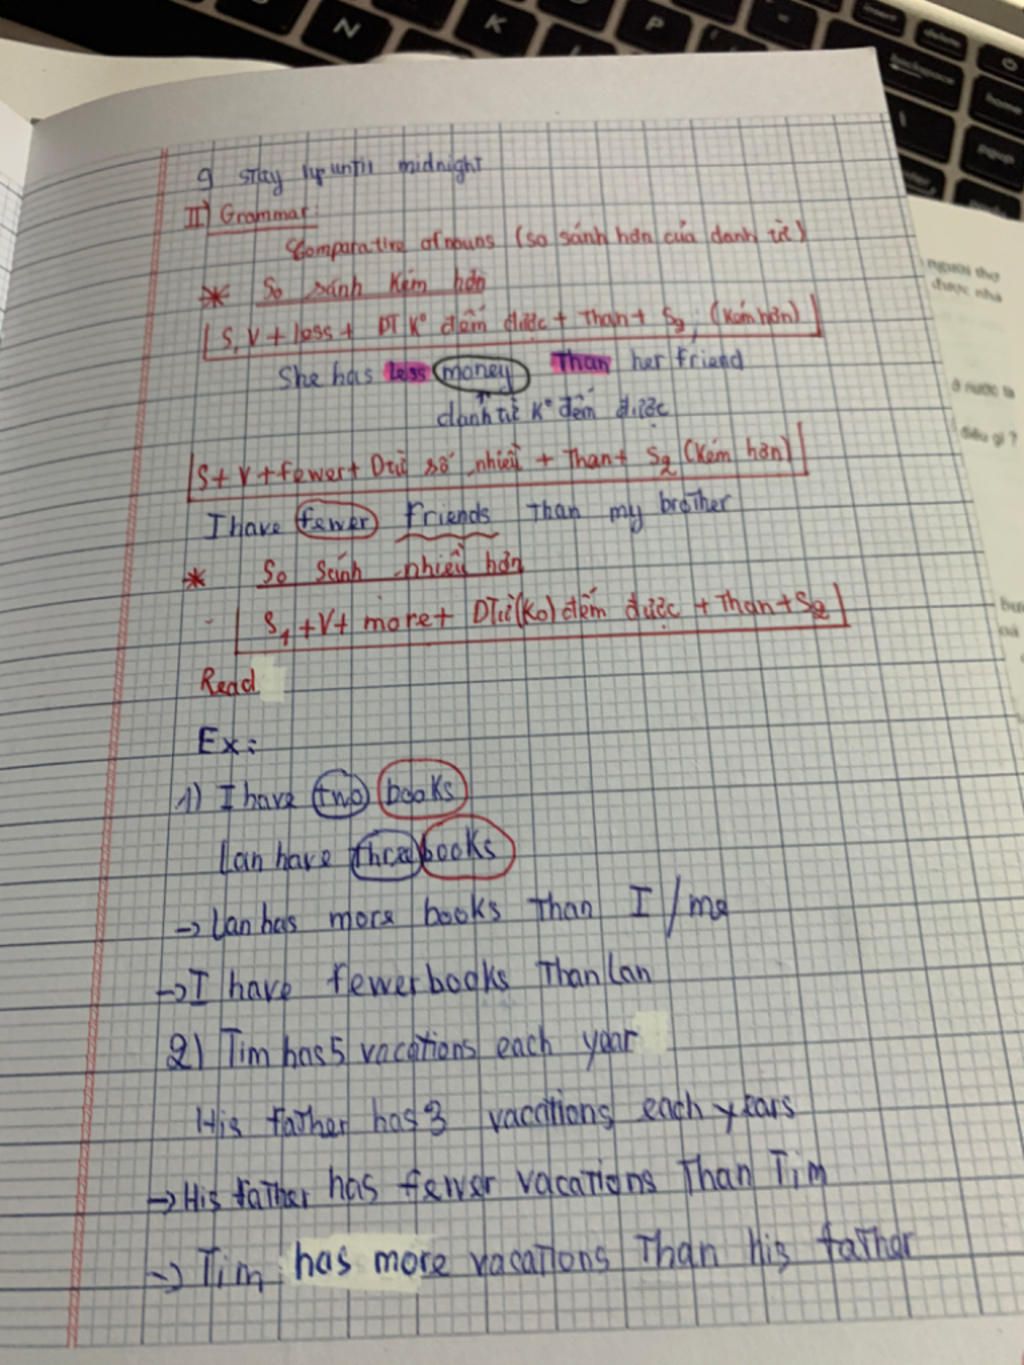 N K P
delete
backspace
home
9 stay up until midnight
II) Grammar:
Comparative of nouns (so sánh hơn của danh từ)
* So sánh kém hơn
S, V + less + DT K° đếm được + Than + S2 (kém hơn)
She has less money Than her friend
danh từ K° đếm được
S + V + fewer + Dtừ số nhiều + Than + S2 (kém hơn)
I have fewer friends Than my brother
* So sánh nhiều hơn
S1 + V + more + DTừ (Ko) đếm được + Than + S2
Read
Ex:
1) I have two books
Lan have three books
-> Lan has more books Than I / me
-> I have fewer books Than Lan
2) Tim has 5 vacations each year
His father has 3 vacations each years
-> His father has fewer vacations Than Tim
-> Tim has more vacations Than his father
người thợ
được nhà
ở nước ta
điều gì ?